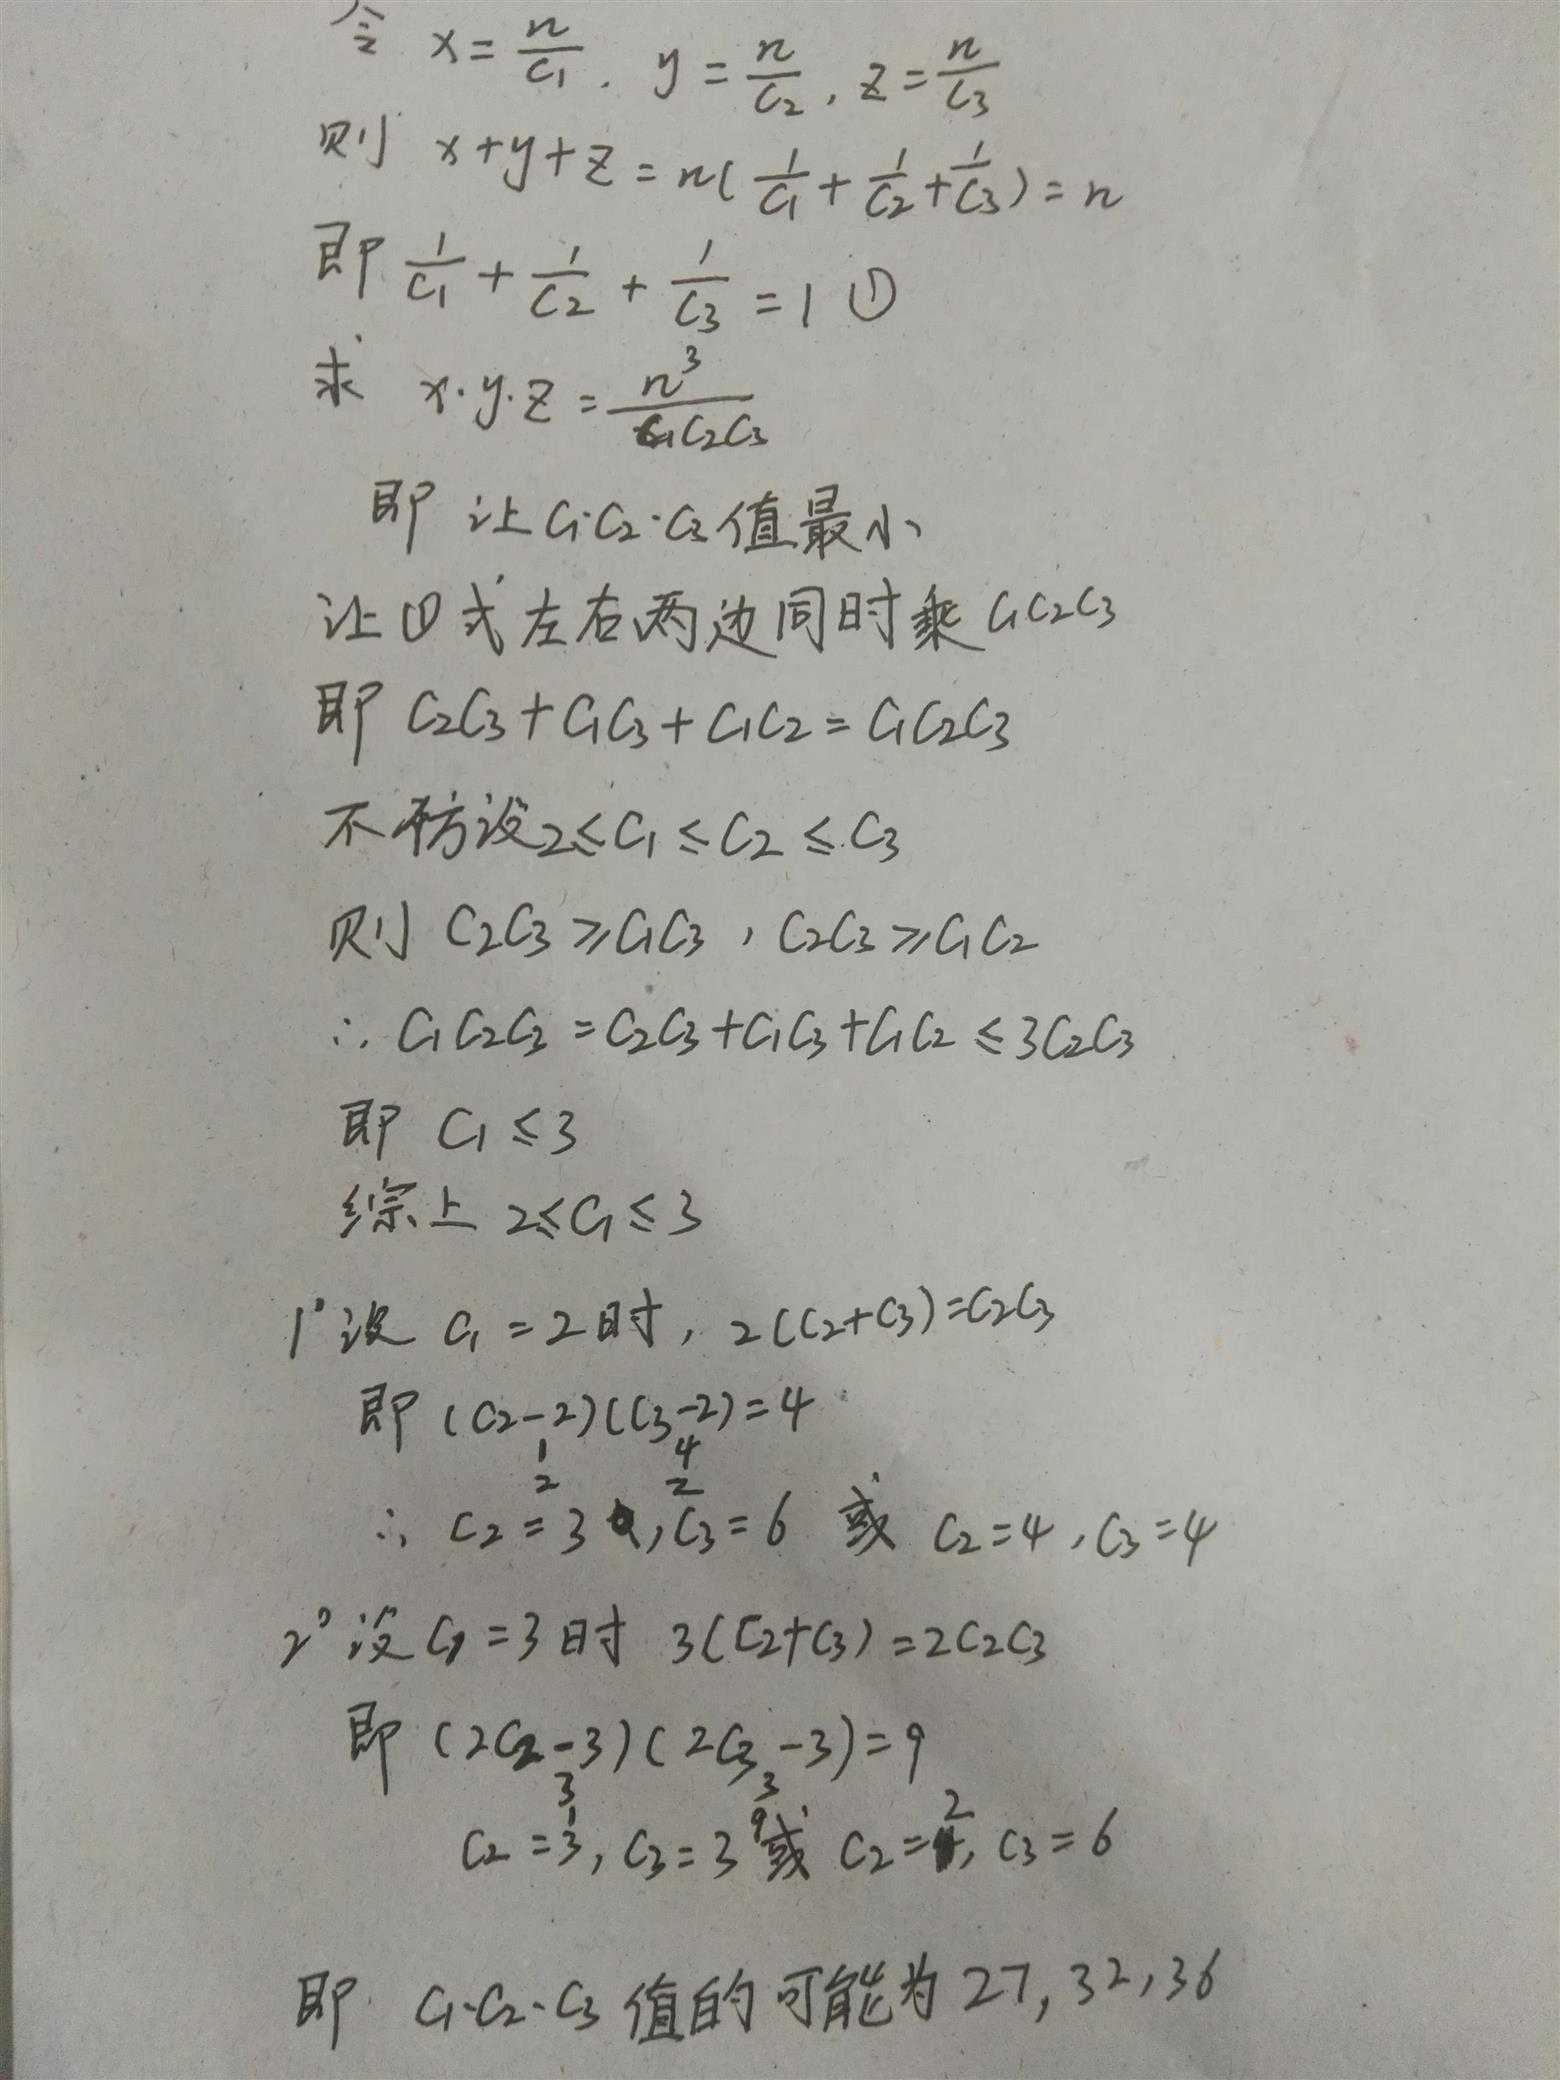 令 x=n/C₁, y=n/C₂, z=n/C₃
则 x+y+z=n(1/C₁+1/C₂+1/C₃)=n
即 1/C₁+1/C₂+1/C₃=1 ①
求 x·y·z=n³/C₁C₂C₃
即 让C₁·C₂·C₃值最小
让①式左右两边同时乘C₁C₂C₃
即 C₂C₃+C₁C₃+C₁C₂=C₁C₂C₃
不妨设2≤C₁≤C₂≤C₃
则 C₂C₃≥C₁C₃, C₂C₃≥C₁C₂
∴ C₁C₂C₃=C₂C₃+C₁C₃+C₁C₂≤3C₂C₃
即 C₁≤3
综上 2≤C₁≤3
1°设 C₁=2时, 2(C₂+C₃)=C₂C₃
即 (C₂-2)(C₃-2)=4
1 4
2 2
∴ C₂=3, C₃=6 或 C₂=4, C₃=4
2°设C₁=3时 3(C₂+C₃)=2C₂C₃
即 (2C₂-3)(2C₃-3)=9
3 3
1 9
C₂=3, C₃=3 或 C₂=2, C₃=6
即 C₁·C₂·C₃值的可能为27,32,36